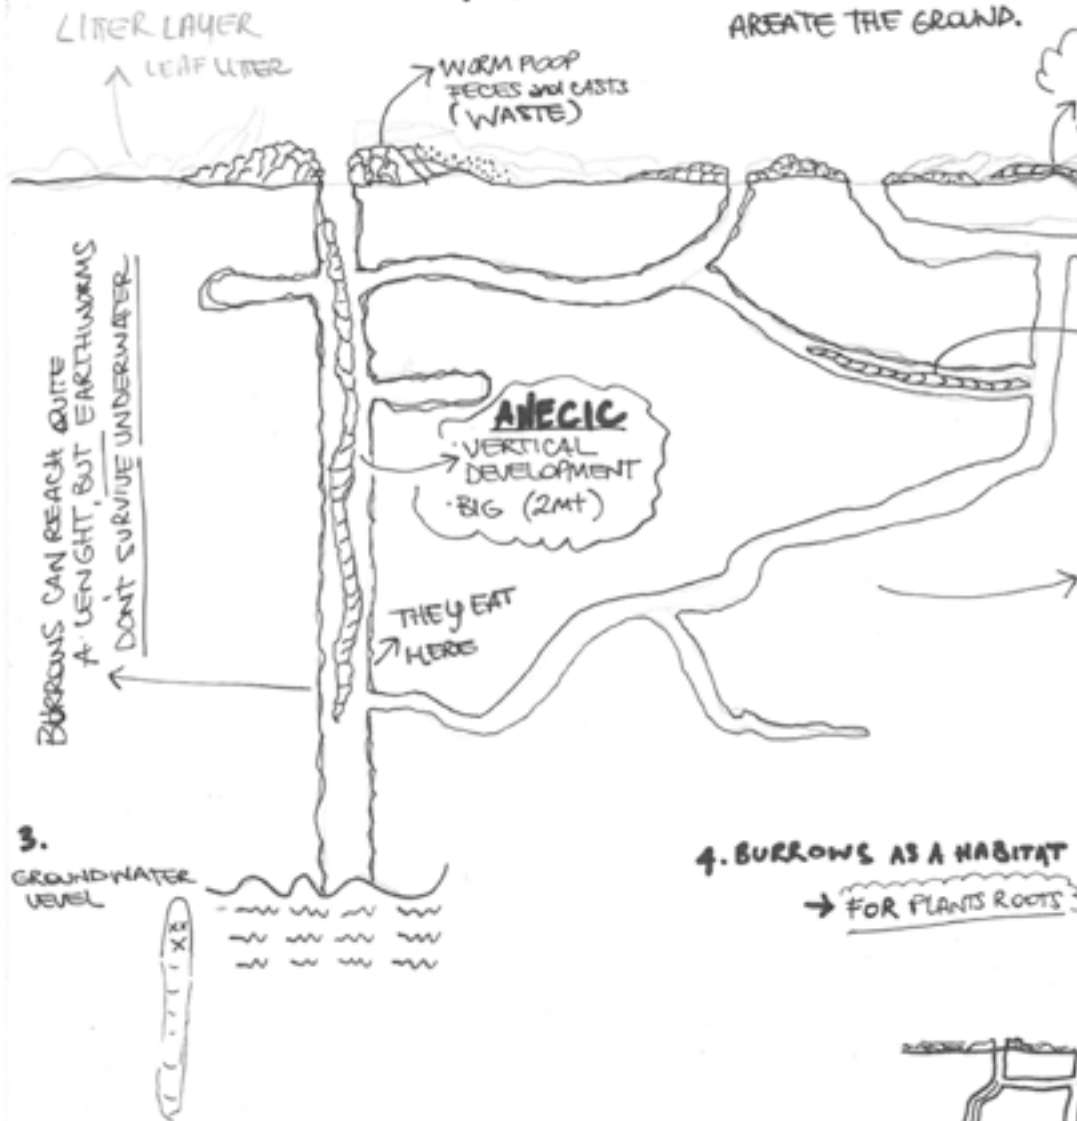 LITTER LAYER
LEAF LITTER
WORM POOP
FECES and CASTS
(WASTE)
AREATE THE GROUND.
BURROWS CAN REACH QUITE
A LENGHT, BUT EARTHWORMS
DON'T SURVIVE UNDERWATER
ANECIC
·VERTICAL
DEVELOPMENT
·BIG (2Mt)
THEY EAT
HERE
3.
GROUNDWATER
LEVEL
4. BURROWS AS A HABITAT
→ FOR PLANTS ROOTS